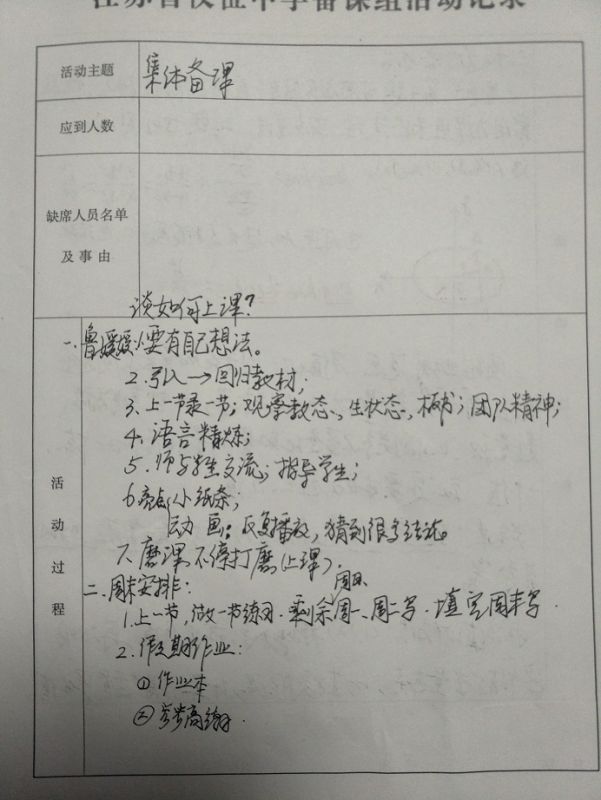 江苏省仪征中学备课组活动记录
活动主题
集体备课
应到人数
缺席人员名单
及事由
活动过程
谈如何上课?
一.鲁媛媛:1.要有自己想法。
2.引入→回归教材;
3.上一节录一节;观察教态、生状态、板书;团队精神;
4.语言精炼;
5.师与学生交流;指导学生;
6.亮点:小纸条;
动画:反复播放,猜到很多结论。
7.磨课 不停打磨(上课).
二.周末安排:
周日
1.上一节,做一节练习.剩余周一、周二写.填完周末写.
2.假期作业:
①作业本
②